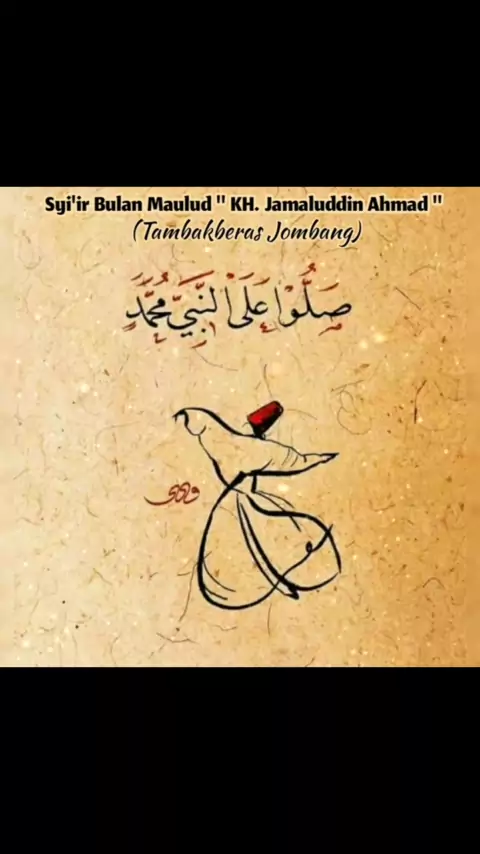 Syi'ir Bulan Maulud " KH. Jamaluddin Ahmad "
(Tambakberas Jombang)
صَلُّوْا عَلَى النَّبِيِّ مُحَمَّدٍ